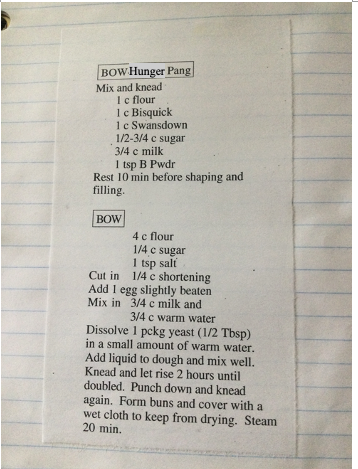 BOW Hunger Pang
Mix and knead
1 c flour
1 c Bisquick
1 c Swansdown
1/2-3/4 c sugar
3/4 c milk
1 tsp B Pwdr
Rest 10 min before shaping and
filling.
BOW
4 c flour
1/4 c sugar
1 tsp salt
Cut in 1/4 c shortening
Add 1 egg slightly beaten
Mix in 3/4 c milk and
3/4 c warm water
Dissolve 1 pckg yeast (1/2 Tbsp)
in a small amount of warm water.
Add liquid to dough and mix well.
Knead and let rise 2 hours until
doubled. Punch down and knead
again. Form buns and cover with a
wet cloth to keep from drying. Steam
20 min.